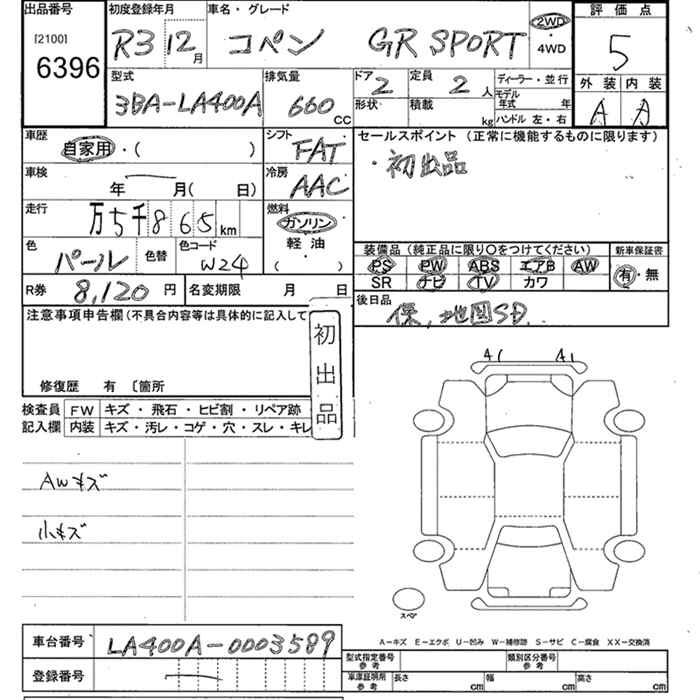 出品番号 初度登録年月 車名・グレード 評価点
[2100] R3 12月 コペン GR SPORT 2WD・4WD 5
6396
型式 排気量 ドア 2 定員 2人 ディーラー・並行 外装 内装
3BA-LA400A 660 CC 形状 積載 kg モデル年式 年 A A
ハンドル 左・右
車歴 自家用・( ) シフト FAT セールスポイント (正常に機能するものに限ります)
・初出品
車検 年 月(日) 冷房 AAC
走行 万5千865km 燃料 ガソリン・軽油・( )
色 パール 色替 色コード W24
装備品(純正品に限り○をつけてください) 新車保証書
PS PW ABS エアB AW 有・無
SR ナビ TV カワ
R券 8,120 円 名変期限 月 日 後日品
保、地図SD、
注意事項申告欄(不具合内容等は具体的に記入して
初出品
修復歴 有 〔箇所
検査員 FW キズ・飛石・ヒビ割・リペア跡
記入欄 内装 キズ・汚レ・コゲ・穴・スレ・キレ
AWキズ
小キズ
スペア
A-キズ E-エクボ U-凹み W-補修跡 S-サビ C-腐食 XX-交換済
車台番号 LA400A-0003589
型式指定番号参考 類別区分番号参考
登録番号
車庫証明用参考 長さ cm 幅 cm 高さ cm